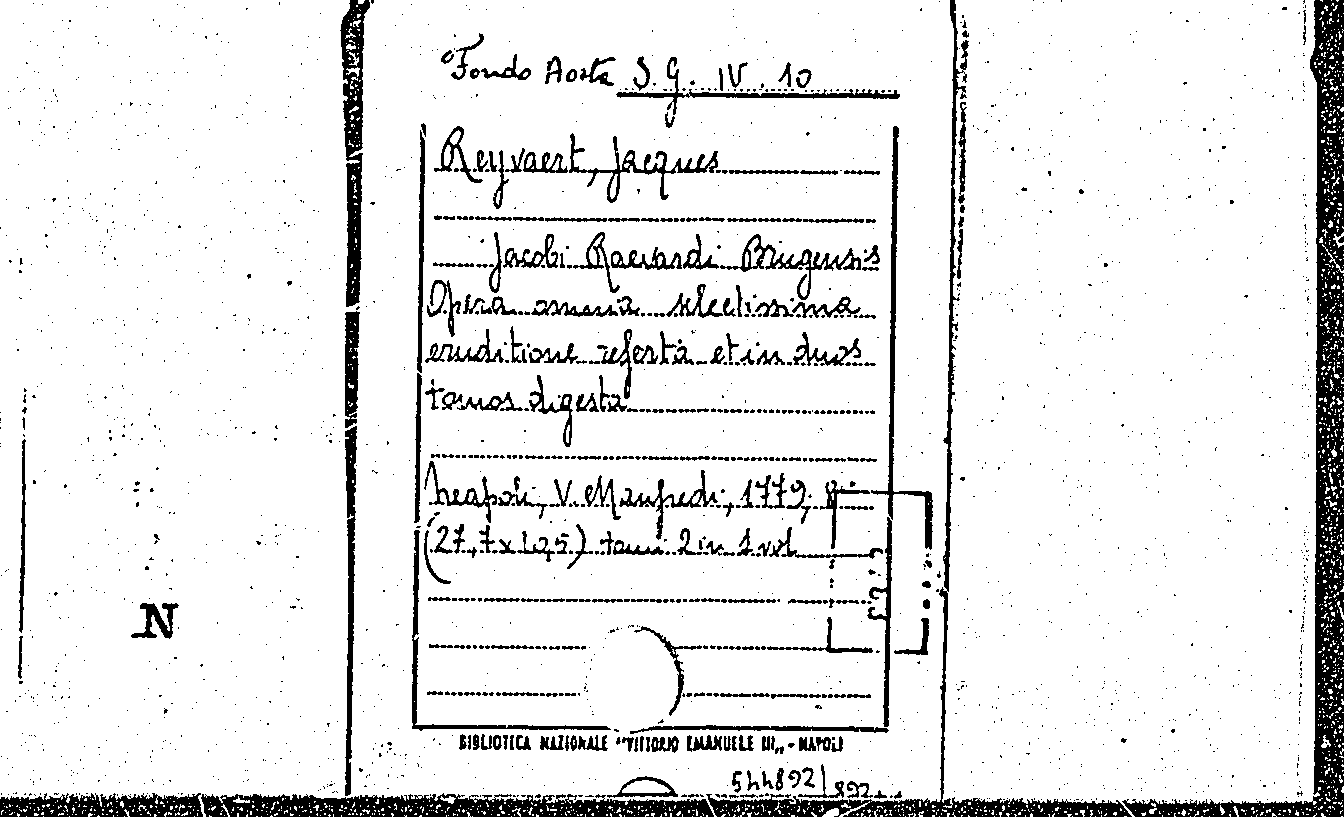 Fondo Aosta S.G. IV. 10
Reyvaert, Jacques
Jacobi Raevardi Brugensis
Opera omnia selectissima
eruditione referta et in duos
tomos digesta
Neapoli, V. Manfredi, 1779, 8º
(27,7x19,5) tomi 2 in 1 vol.
N
BIBLIOTECA NAZIONALE "VITTORIO EMANUELE III„ - NAPOLI
544892/892